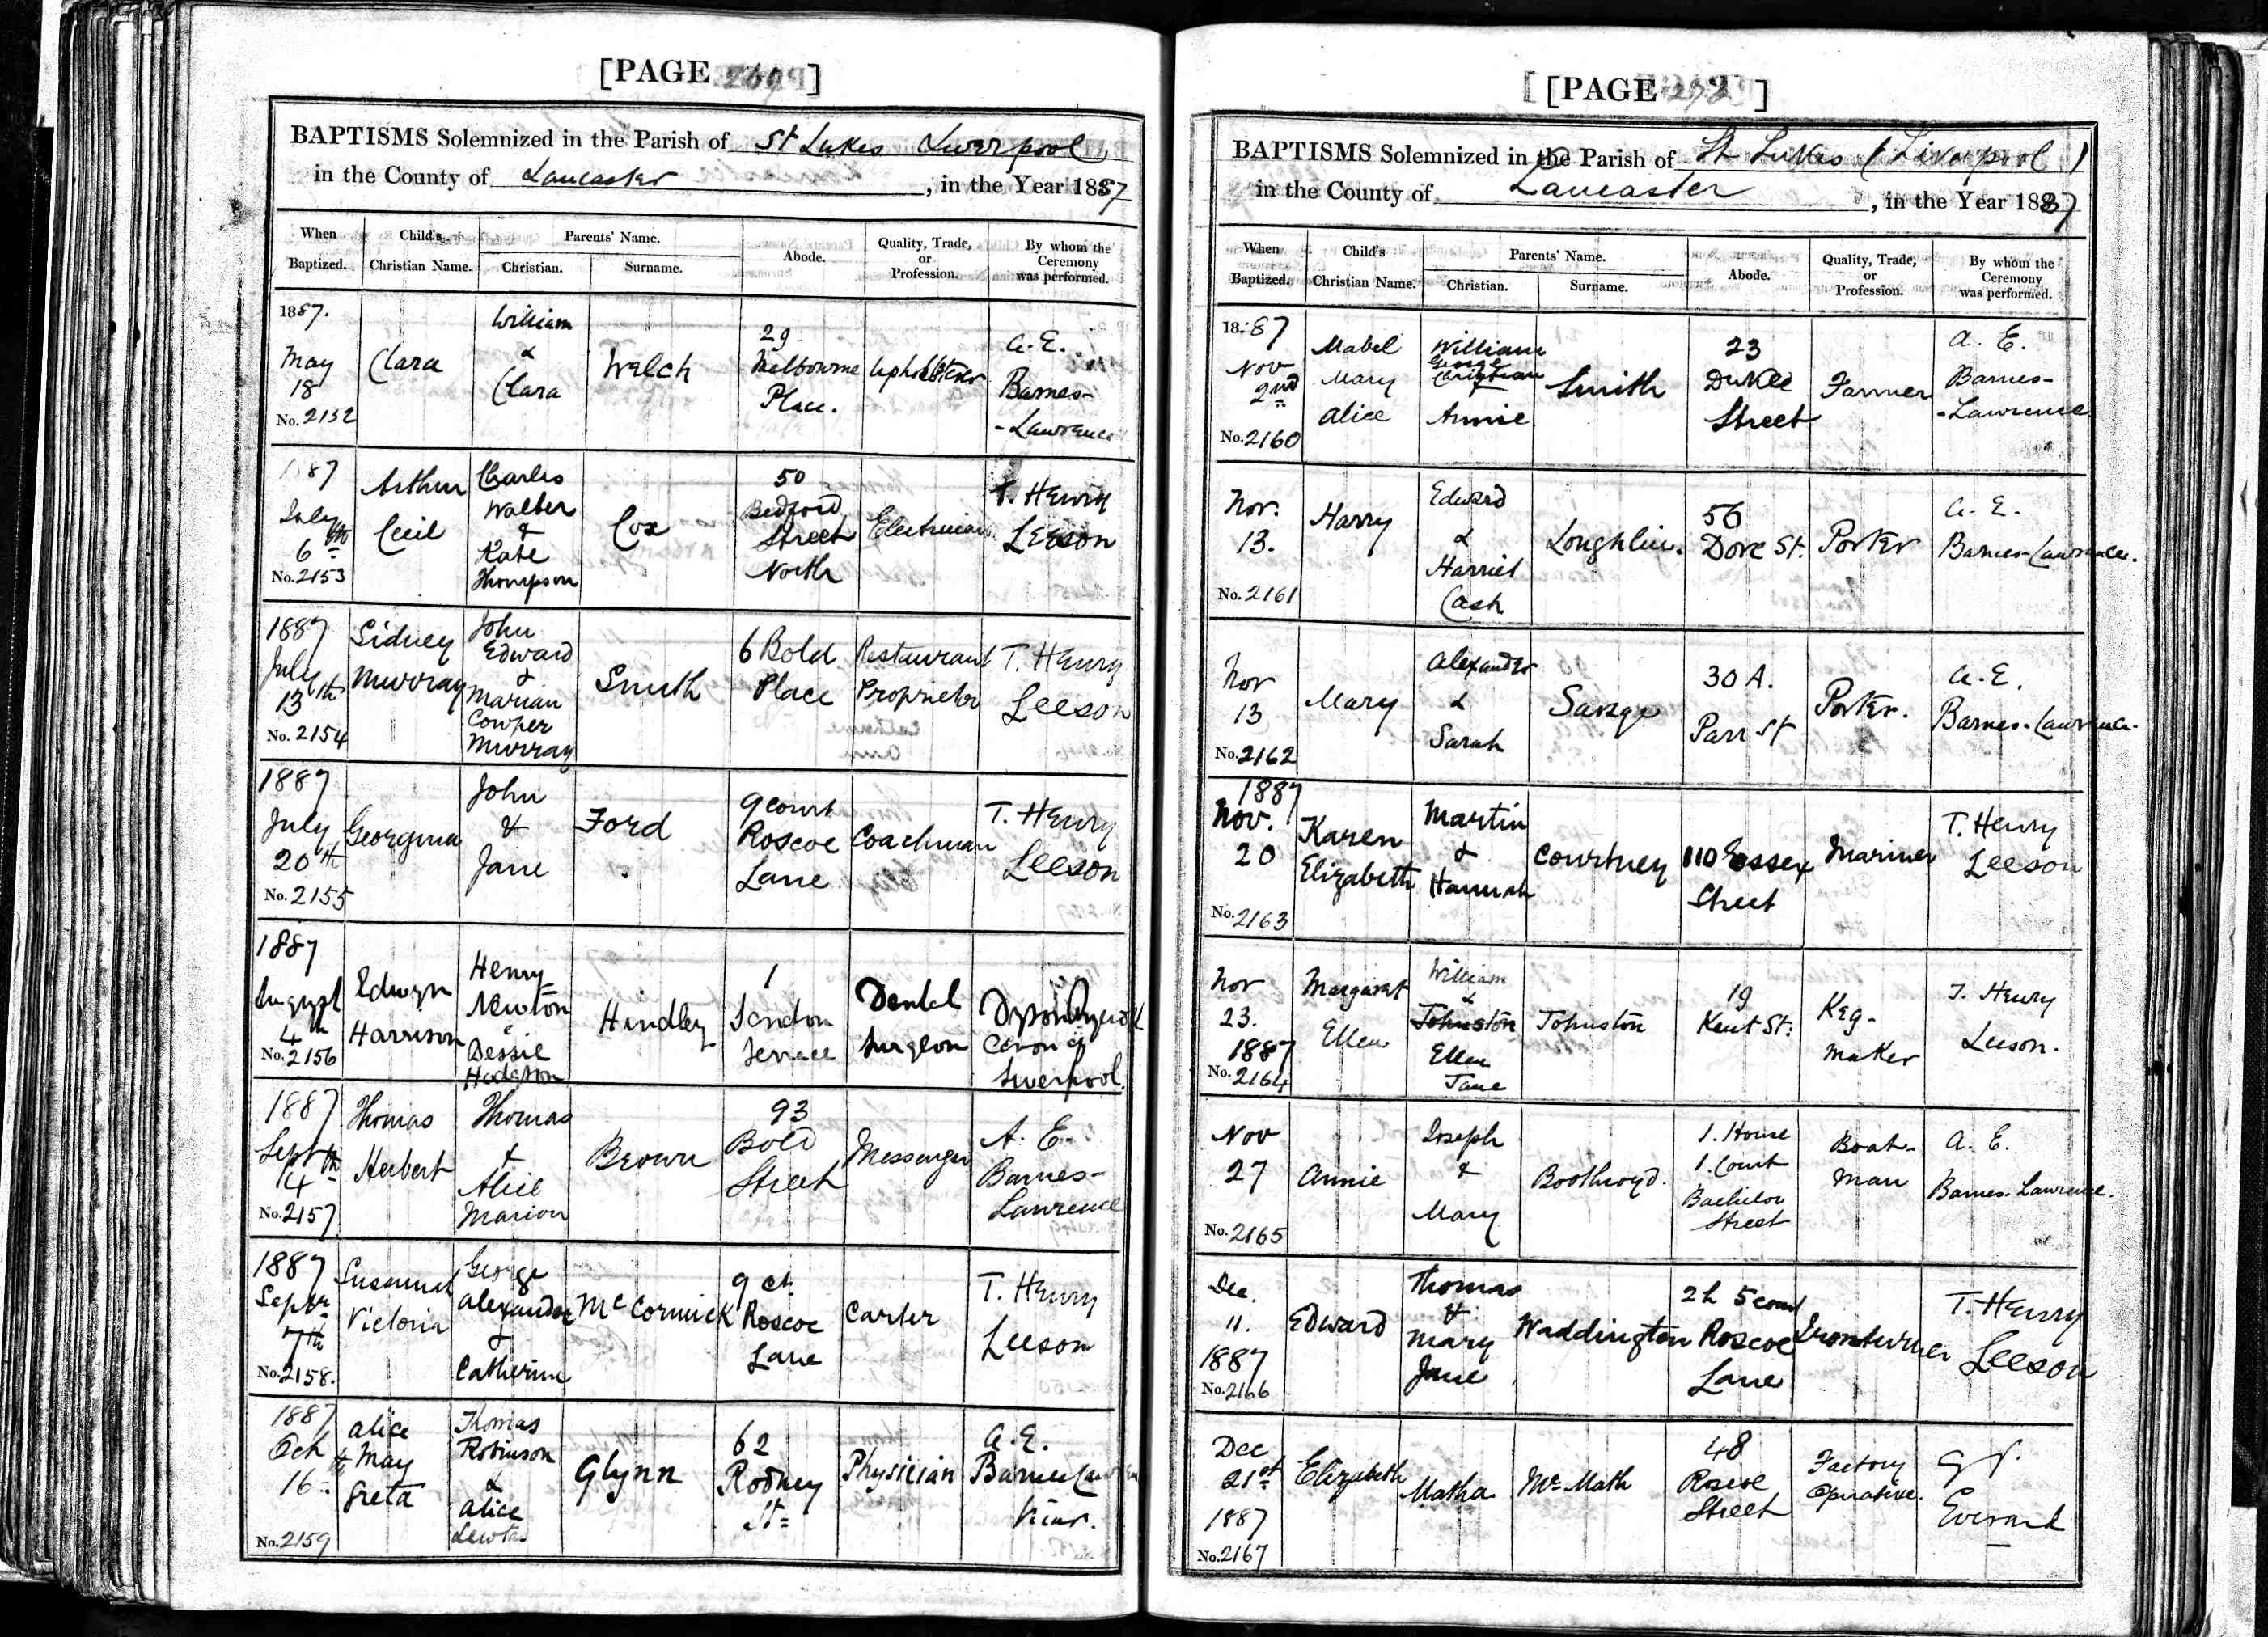 [PAGE 269]
BAPTISMS Solemnized in the Parish of St Lukes Liverpool,
in the County of Lancaster, in the Year 1887
When Baptized.
Child's Christian Name.
Parents' Name.
Christian.
Surname.
Abode.
Quality, Trade, or Profession.
By whom the Ceremony was performed.
1887. May 18 No. 2152
Clara
William & Clara
Welch
29 Melbourne Place.
Upholsterer
A. E. Barnes-Lawrence
1887 July 6th No. 2153
Arthur Cecil
Charles Walter & Kate Thompson
Cox
50 Bedford Street North
Electrician
T. Henry Leeson
1887 July 13th No. 2154
Sidney Murray
John Edward & Marian Cowper Murray
Smith
6 Bold Place
Restaurant Proprietor
T. Henry Leeson
1887 July 20th No. 2155
Georgina
John & Jane
Ford
9 court Roscoe Lane
Coachman
T. Henry Leeson
1887 August 4th No. 2156
Edwyn Harrison
Henry Newton & Bessie Hodgson
Hindley
1 Sandon Terrace
Dental Surgeon
Liverpool.
1887 Sept 14th No. 2157
Thomas Herbert
Thomas & Alice Marion
Brown
93 Bold Street
Messenger
A. E. Barnes-Lawrence
1887 Septr 7th No. 2158.
Susannah Victoria
George Alexander & Catherine
McCormick
9 ct. Roscoe Lane
Carter
T. Henry Leeson
1887 Oct 16th No. 2159
Alice May Greta
Thomas Robinson & Alice Lewtas
Glynn
62 Rodney St
Physician
A. E. Barnes Lawrence Vicar.
[PAGE 272]
BAPTISMS Solemnized in the Parish of St Lukes (Liverpool)
in the County of Lancaster, in the Year 1887
When Baptized.
Child's Christian Name.
Parents' Name.
Christian.
Surname.
Abode.
Quality, Trade, or Profession.
By whom the Ceremony was performed.
1887 Nov 2nd No. 2160
Mabel Mary Alice
William George Christian & Annie
Smith
23 Duke Street
Farmer
A. E. Barnes-Lawrence
Nov. 13. No. 2161
Harry
Edward & Harriet Cash
Loughlin.
56 Dove St.
Porter
A. E. Barnes-Lawrence.
Nov 13 No. 2162
Mary
Alexander & Sarah
Savage
30 A. Parr St
Porter.
A. E. Barnes-Lawrence.
1887 Nov. 20 No. 2163
Karen Elizabeth
Martin & Hannah
Courtney
110 Essex Street
Mariner
T. Henry Leeson
Nov 23. 1887 No. 2164
Margaret Ellen
William & Johnston Ellen Jane
Johnston
19 Kent St.
Keg-maker
T. Henry Leeson.
Nov 27 No. 2165
Annie
Joseph & Mary
Boothroyd.
1. House 1. Court Bachelor Street
Boat-man
A. E. Barnes-Lawrence.
Dec. 11. 1887 No. 2166
Edward
Thomas & Mary Jane
Waddington
2h 5 court Roscoe Lane
Ironturner
T. Henry Leeson
Dec 21st 1887 No. 2167
Elizabeth
Matha
McMath
48 Roscoe Street
Factory Operative.
Everard